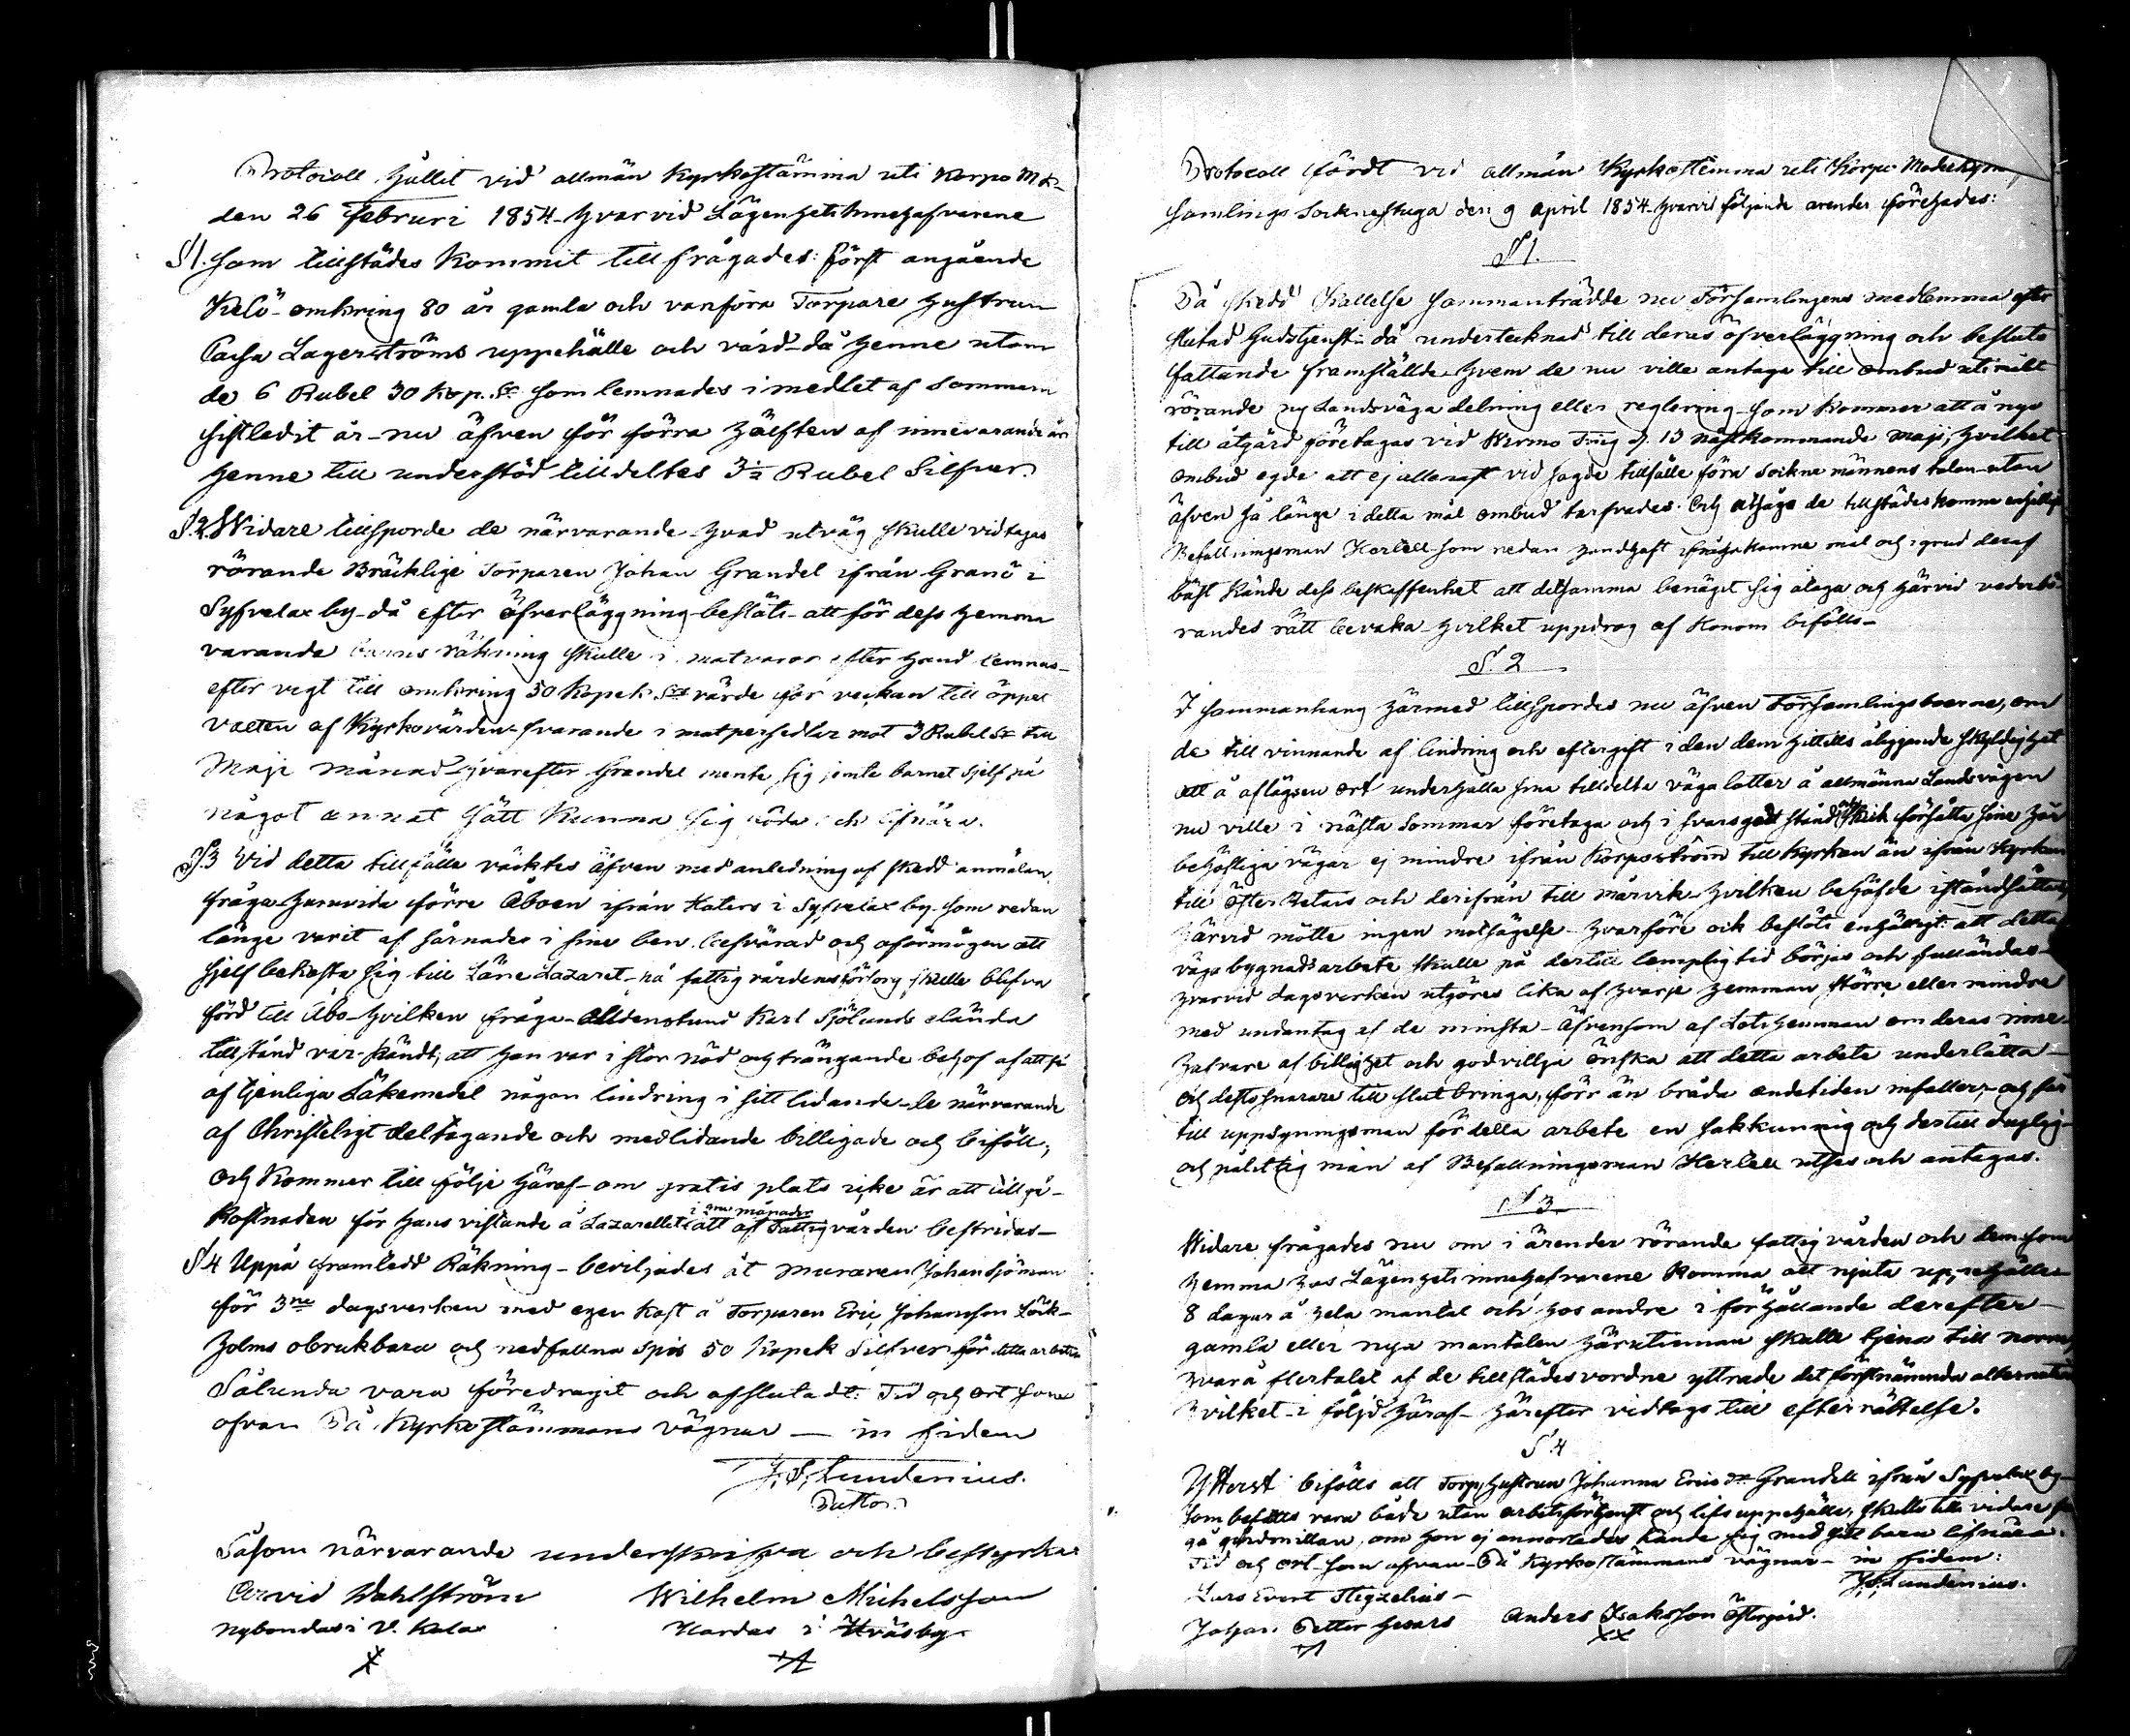 Protocoll hållit vid allmän Kyrkostämma uti Korpo M.K.
den 26 Februri 1854 hvarvid Lägenhets Innehafvarene
§1. som tillstädes kommit tillfrågades: först angående
Kelö omkring 80 år gamla och vanföra Torpare hustrun
Caisa Lagerströms uppehälle och vård då henne utom
de 6 Rubel 30 Kop. Sr som lemnades i medlet af Sommarn
sistledit år nu äfven för förra hälften af innevarande år
henne till understöd tilldeltes 3 Rubel Silfver.
§.2. Widare tillsporde de närvarande hvad utväg skulle vidtagas
rörande Bräcklige Torparen Johan Grandel ifrån Granö i
Syfvelax by då efter öfverläggning beslöts att för dess hemma
varande barns räkning skulle i matvaror efter hand lemnas
efter vigt till omkring 50 Kopek Srs värde för veckan till öppet
vatten af Kyrkovärden svarande i matpersedlar mot 3 Rubel Sr till
Maji månad hvarefter Grandel mente sig jemte barnet sjelf på
något annat sätt kunna sig föda och lifnära.
§.3 Vid detta tillfälle väcktes äfven med anledning af skedd anmälan
fråga huruvida förre Åboen ifrån Katers i Syfvelax by som redan
länge varit af sårnader i sine ben besvärad och oförmögen att
sjelf bekosta sig till Läne Lazaret på fattigvårdens försorg skulle blifva
förd till Åbo hvilken fråga alldenstund Karl Sjölunds elända
tillstånd var kändt, att han var i stor nöd och trängande behof af att få
af tjenliga Läkemedel någon lindring i sitt lidande de närvarande
af Christeligt deltagande och medlidande billigade och biföll,
och kommer till följe häraf om gratis plats icke är att tillgå
kostnaden för hans vistande å Lazarettet i 2ne månader att af Fattigvården bestridas
§4 Uppå framledd Räkning beviljades åt muraren Johan Sjöman
för 3ne dagsverken med egen kost å Torparen Eric Johansson Lök-
holms obrukbara och nedfallna spis 50 Kopek Silfver för detta arbete
Sålunda vara föredragit och afslutadt: Tid och ort som
ofvan På Kyrkostämmans vägnar in fidem
J. S. Lundenius.
Pastor.
Såsom närvarande underskrifva och bestyrka
Arvid Wahlström Wilhelm Michelsson
Nybondas i V. Kalax Hardas i Kräsby
Protocoll fördt vid allmän Kyrkostämma uti Korpo Moderkyrko
samlings Socknestuga den 9 April 1854 hvarvid följande ärender förehades:
§1.
På skedd Kallelse sammanträdde nu Församlingens medlemmar efter
slutad Gudstjenst då undertecknad till deras öfverläggning och besluts
fattande framställde hvem de nu ville antaga till ombud uti målet
rörande ny Landsväga delning eller reglering som kommer att å nyo
till åtgärd företagas vid Kirmo Ting d. 13 nästkommande Maji, hvilket
ombud egde att ej allenast vid sagde tillfälle föra Sockne männens talan utan
äfven så länge i detta mål ombud tarfvades. Och utsågo de tillstädes komne enhälligt
Befallningsman Kertell som redan handhaft ifrågakomne mål och i grund deraf
bäst kände dess beskaffenhet att detsamma benäget sig åtaga och härvid vederbö-
randes rätt bevaka hvilket uppdrag af Honom bifölls
§.2
I sammanhang härmed tillspordes nu äfven Församlingsboerne, om
de till vinnande af lindring och eftergift i den dem hittills åliggande skyldighet
att å aflägsen ort underhålla sina tilldelta väga lotter å allmänna Landsvägen
nu ville i nästa Sommar företaga och i svarsgodt stånd och skick försätta sine här
behöfliga vägar ej mindre ifrån Korpoström till Kyrkan än ifrån Kyrkan
till Öster Retais och derifrån till Mårvik hvilken behöfde iståndsättas
härvid mötte ingen motsägelse hvarföre ock beslöts enhälligt: att detta
vägabygnads arbete skulle på dertill lemplig tid börjas och fulländas
hvarvid dagsverken utgöres lika af hvarje hemman större eller mindre
med undantag af de minsta äfvensom af Lots hemman om deras inne-
hafvare af billighet och godvillja önska att detta arbete underlätta
och desto snarare till slut bringa, förr än bråda andetiden infaller, och får
till uppsyningsman för detta arbete en sakkunnig och dertill duglig
och pålitlig man af Befallningsman Kertell utses och antagas.
§3
Widare frågades nu om i ärender rörande fattigvården och dem som
hemma hos Lägenhets innehafvarene komma att njuta uppehälle
8 dagar å hela mantal och hos andre i förhållande derefter
gamla eller nya mantalen härutinnan skulle tjena till norm
hvarå flertalet af de tillstädesvordne yttrade det förstnämnda alternativ
hvilket i följd häraf härefter vidtogs till efterrättelse.
§.4
Ytterst bifölls att Torp.hustrun Johanna Ericsdr Grandell ifrån Syfvelax by
som befälls vara både utan arbetsförtjenst och lifs uppehälle, skulle tills vidare få
gå gårdmillan, om hon ej annorledes kunde sig med sitt barn lifnära.
Tid och ort som ofvan På Kyrkostämmans vägnar in fidem:
J. S. Lundenius.
Lars Evert Stigzelius
Johan Petter Gesars Anders Isaksson Östergård.